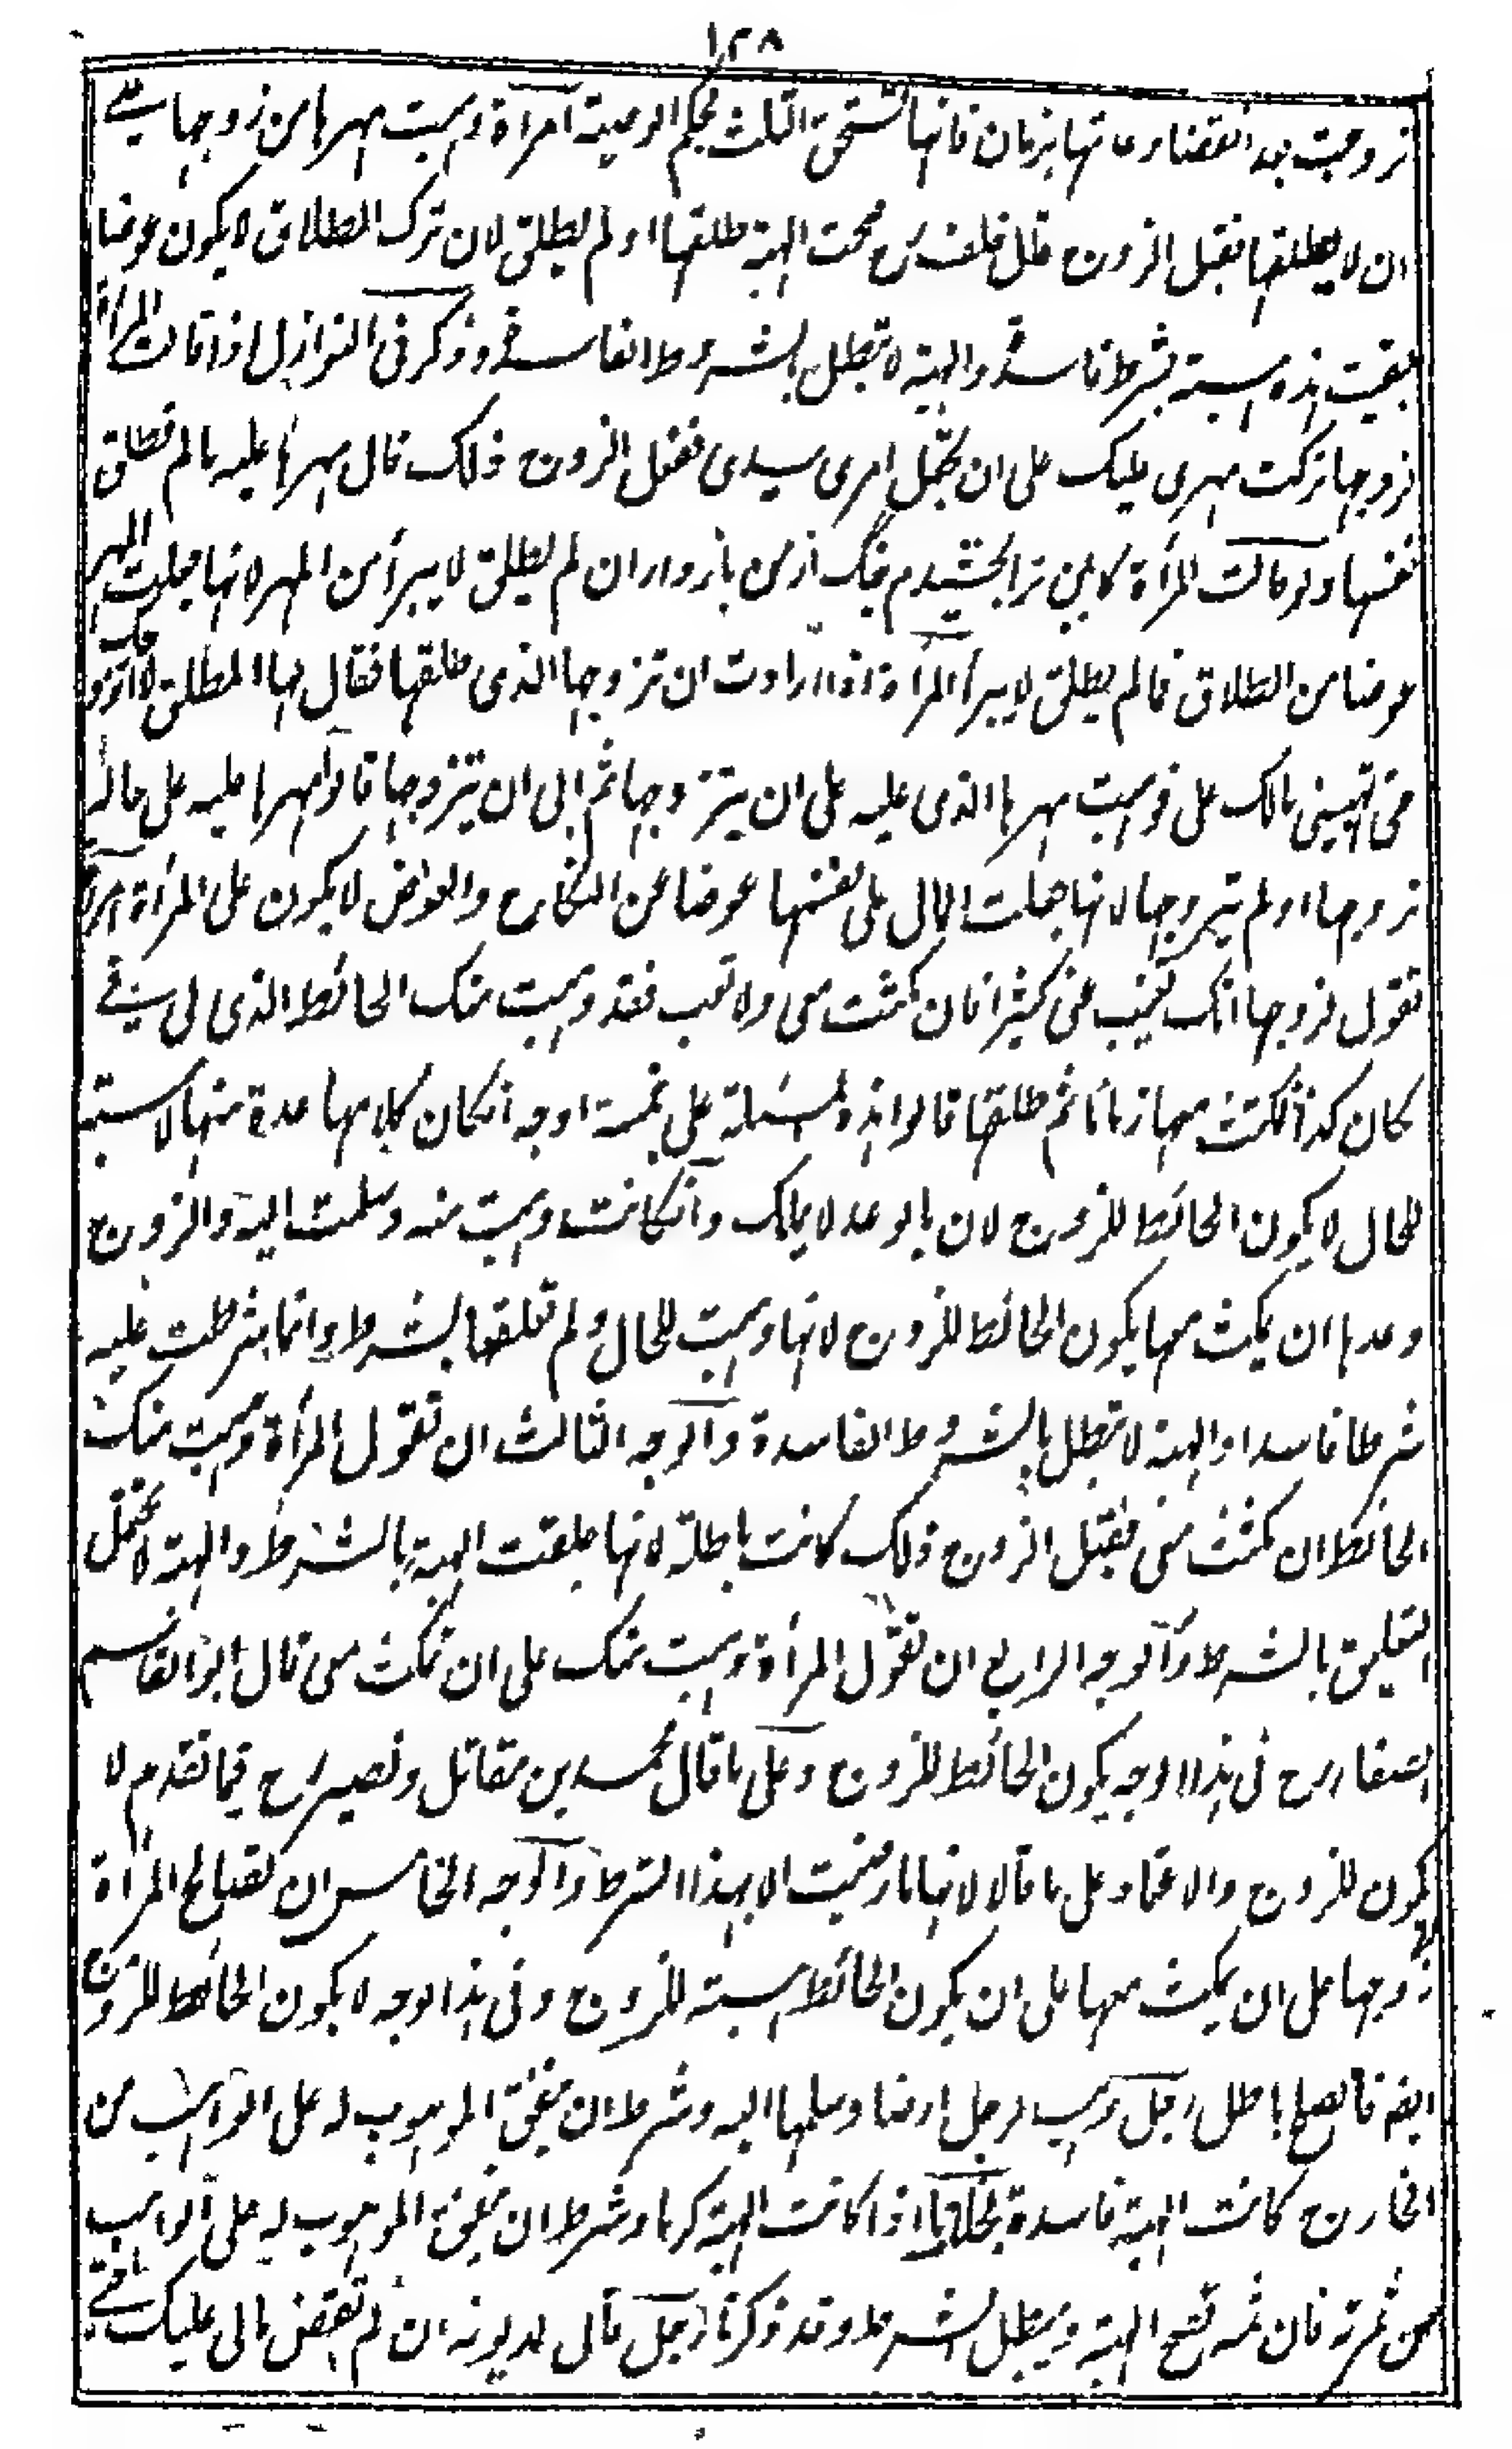 ١٢٨
تزوجت بعد انقضاء عدتها بزمان فانها تستحق الثلث بحكم الوصية امرأة وهبت مهرها من زوجها على
ان لا يطلقها فقبل الزوج قال خلف رح صحت الهبة طلقها او لم يطلق لان ترك الطلاق لا يكون عوضا
فبقيت هذه هبة بشرط فاسد والهبة لا تبطل بالشروط الفاسدة وذكر فى النوازل اذا قالت المرأة
لزوجها تركت مهرى عليك على ان تجعل امرى بيدى ففعل الزوج ذلك قال مهرها عليه ما لم تطلق
نفسها ولو قالت المرأة كابين ترا بخشيدم چنگ از من بازدار ان لم يطلق لا يبرأ من المهر لانها جعلت المهر
عوضا من الطلاق فما لم يطلق لا يبرأ المرأة اذا ارادت ان تزوجها الذى طلقها فقال لها المطلق لا اتزوجك
حتى تهبينى مالك على فوهبت مهرها الذى عليه على ان يتزوجها ثم ابى ان يتزوجها قالوا مهرها عليه على حاله
تزوجها او لم يتزوجها لانها جعلت المال على نفسها عوضا عن النكاح والعوض لا يكون على المرأة امرأة
تقول لزوجها انك تغيب عنى كثيرا فان مكثت معى ولا تغب فقد وهبت منك الحائط الذى لى فى
مكان كذا فمكث معها زمانا ثم طلقها قالوا هذه المسئلة على خمسة اوجه انكان كلامها عدة منها لا هبة
للحال لا يكون الحائط للزوج لان بالوعد لا يملك وانكانت وهبت منه وسلمت اليه والزوج
وعدها ان يمكث معها يكون الحائط للزوج لانها وهبت للحال ولم تعلقها بشرط وانما شرطت عليه
شرطا فاسدا والهبة لا تبطل بالشروط الفاسدة والوجه الثالث ان تقول المرأة وهبت منك
الحائط ان مكثت معى فقبل الزوج ذلك كانت باطلة لانها علقت الهبة بالشرط والهبة لا تحتمل
التعليق بالشرط والوجه الرابع ان تقول المرأة وهبت منك على ان تمكث معى قال ابو القاسم
الصفار رح فى هذا الوجه يكون الحائط للزوج وعلى ما قال محمد بن مقاتل ونصير رح فيما تقدم لا
يكون للزوج والاعتماد على ما قالا لانها ما رضيت الا بهذا الشرط والوجه الخامس ان تصالح المرأة
زوجها على ان يمكث معها على ان يكون الحائط هبة للزوج وفى هذا الوجه لا يكون الحائط للزوج
ايضم فالصلح باطل رجل وهب لرجل ارضا وسلمها اليه وشرط ان ينفق الموهوب له على الواهب من
الخارج كانت الهبة فاسدة بخلاف ما اذا كانت الهبة كرما وشرط ان ينفق الموهوب له على الواهب
من ثمرته فان ثمه تصح الهبة ويبطل الشرط وقد ذكرنا رجل قال لمديونه ان لم تقض مالى عليك حتى